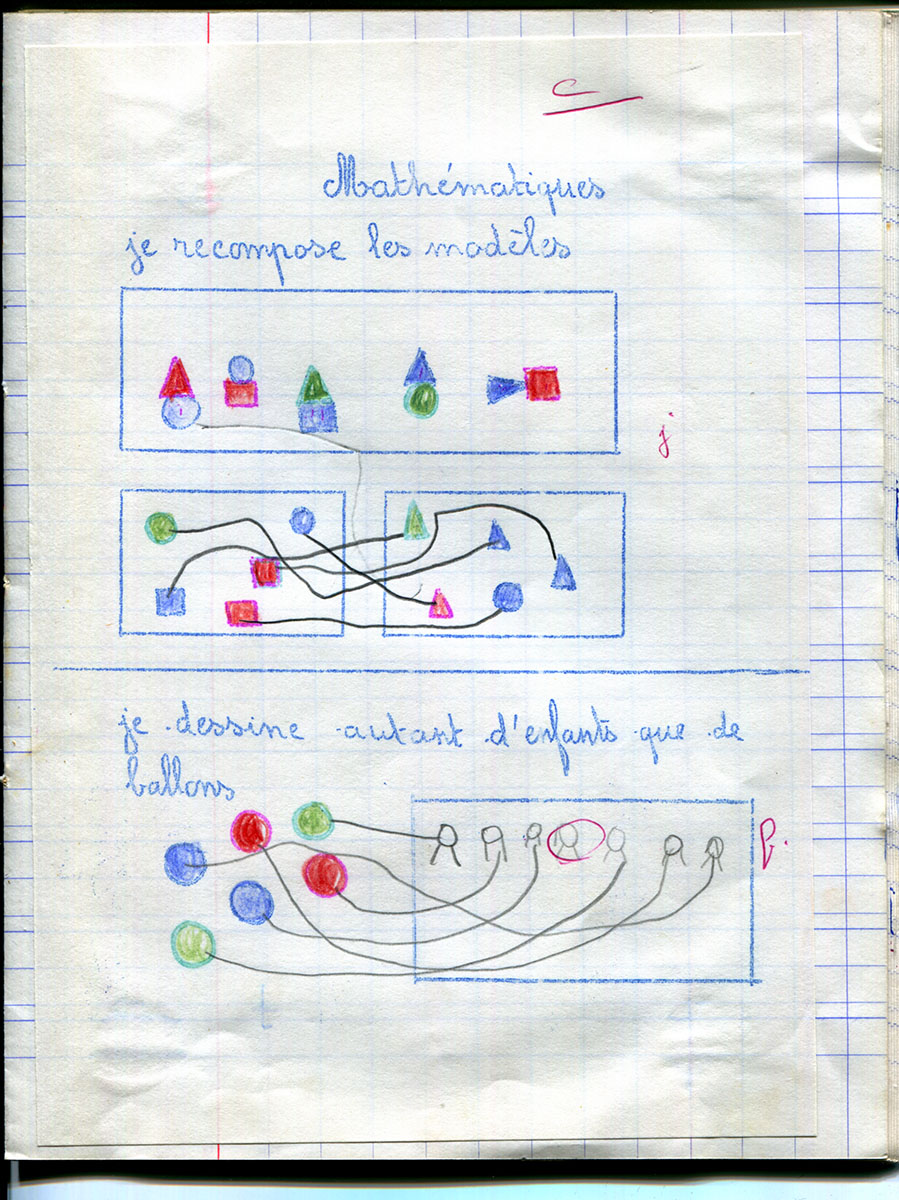 C
Mathématiques
je recompose les modèles
j
je dessine autant d'enfants que de
ballons